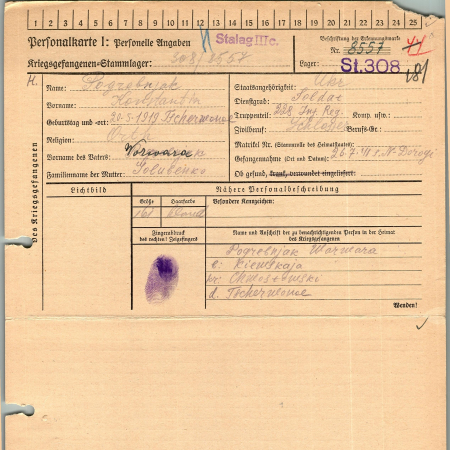 1 2 3 4 5 6 7 8 9 10 11 12 13 14 15 16 17 18 19 20 21 22 23 24 25
Personalkarte I: Personelle Angaben
Stalag III c.
Beschriftung der Erkennungsmarke
Nr. 8557
Kriegsgefangenen-Stammlager: 308/8557
Lager: St. 308
Des Kriegsgefangenen
Name: Pogrebnjak
Staatsangehörigkeit: Ukr
Vorname: Konstantin
Dienstgrad: Soldat
Geburtstag und -ort: 20-5-1919 Tschermone
Truppenteil: 228 Inf. Reg. Komp. usw.:
Religion: Ort.
Zivilberuf: Schlosser Berufs-Gr.:
Vorname des Vaters: Worwara
Matrikel Nr. (Stammrolle des Heimatstaates):
Familienname der Mutter: Golubenko
Gefangennahme (Ort und Datum): 26.7.41 N-Dorogi
Ob gesund, krank, verwundet eingeliefert:
Lichtbild
Nähere Personalbeschreibung
Größe
Haarfarbe
Besondere Kennzeichen:
161
Fingerabdruck
des rechten! Zeigefingers
Name und Anschrift der zu benachrichtigenden Person in der Heimat
des Kriegsgefangenen
Pogrebnjak Warwara
Kiewskaja
d. Tschermone
Wenden!